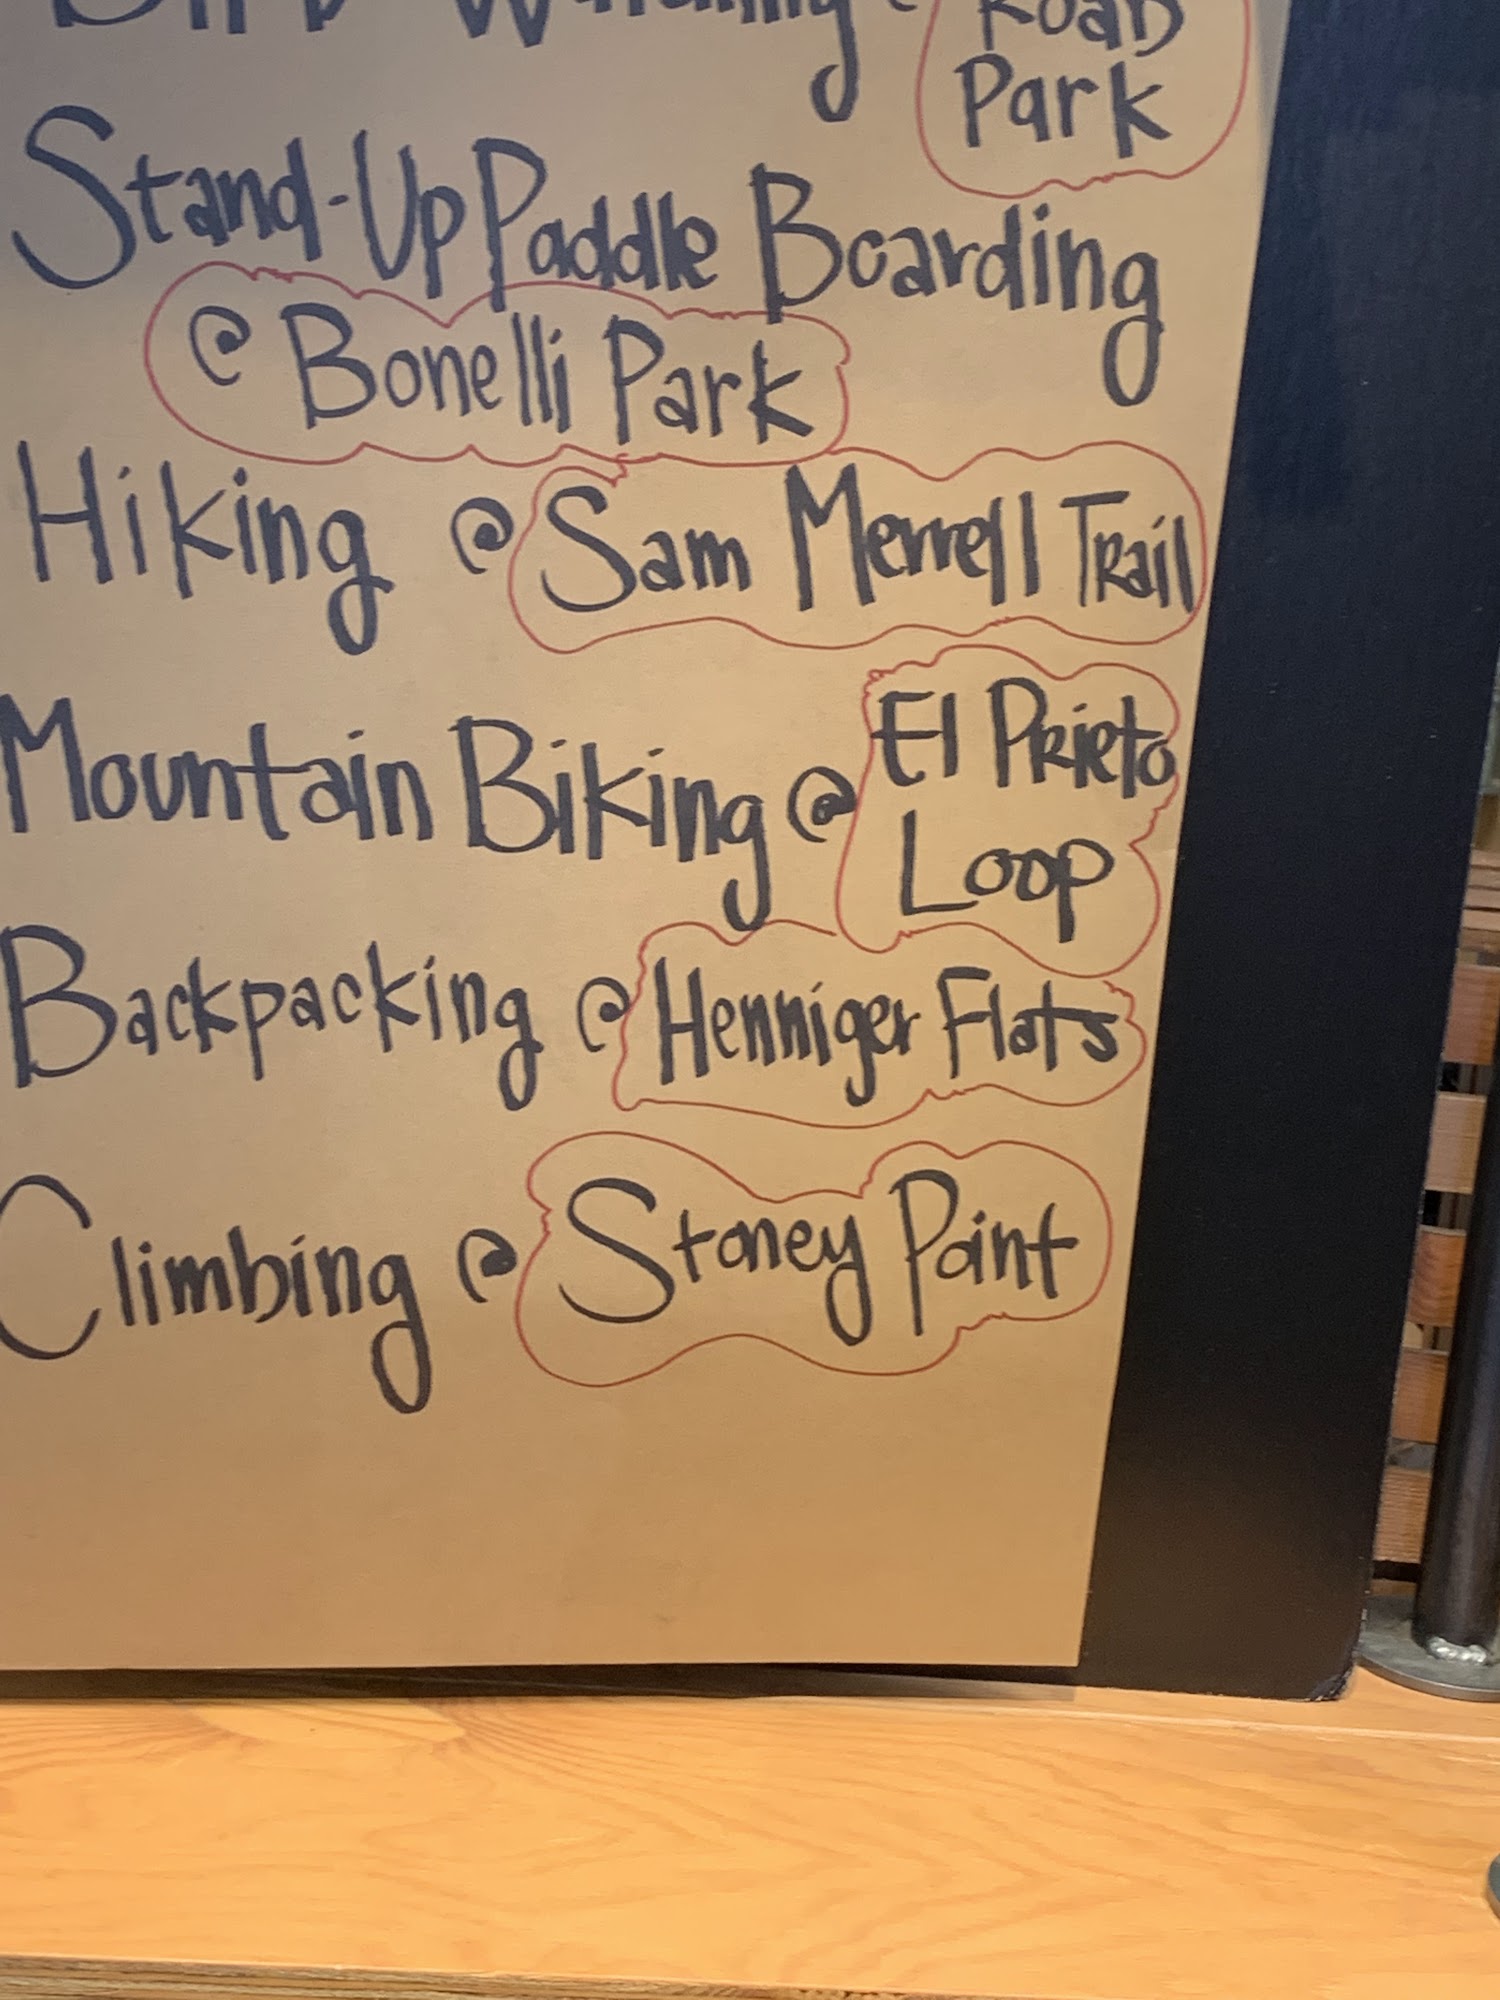 Bird Watching @ Road
Park
Stand-Up Paddle Boarding
@ Bonelli Park
Hiking @ Sam Merrell Trail
Mountain Biking @ El Prieto
Loop
Backpacking @ Henniger Flats
Climbing @ Stoney Point